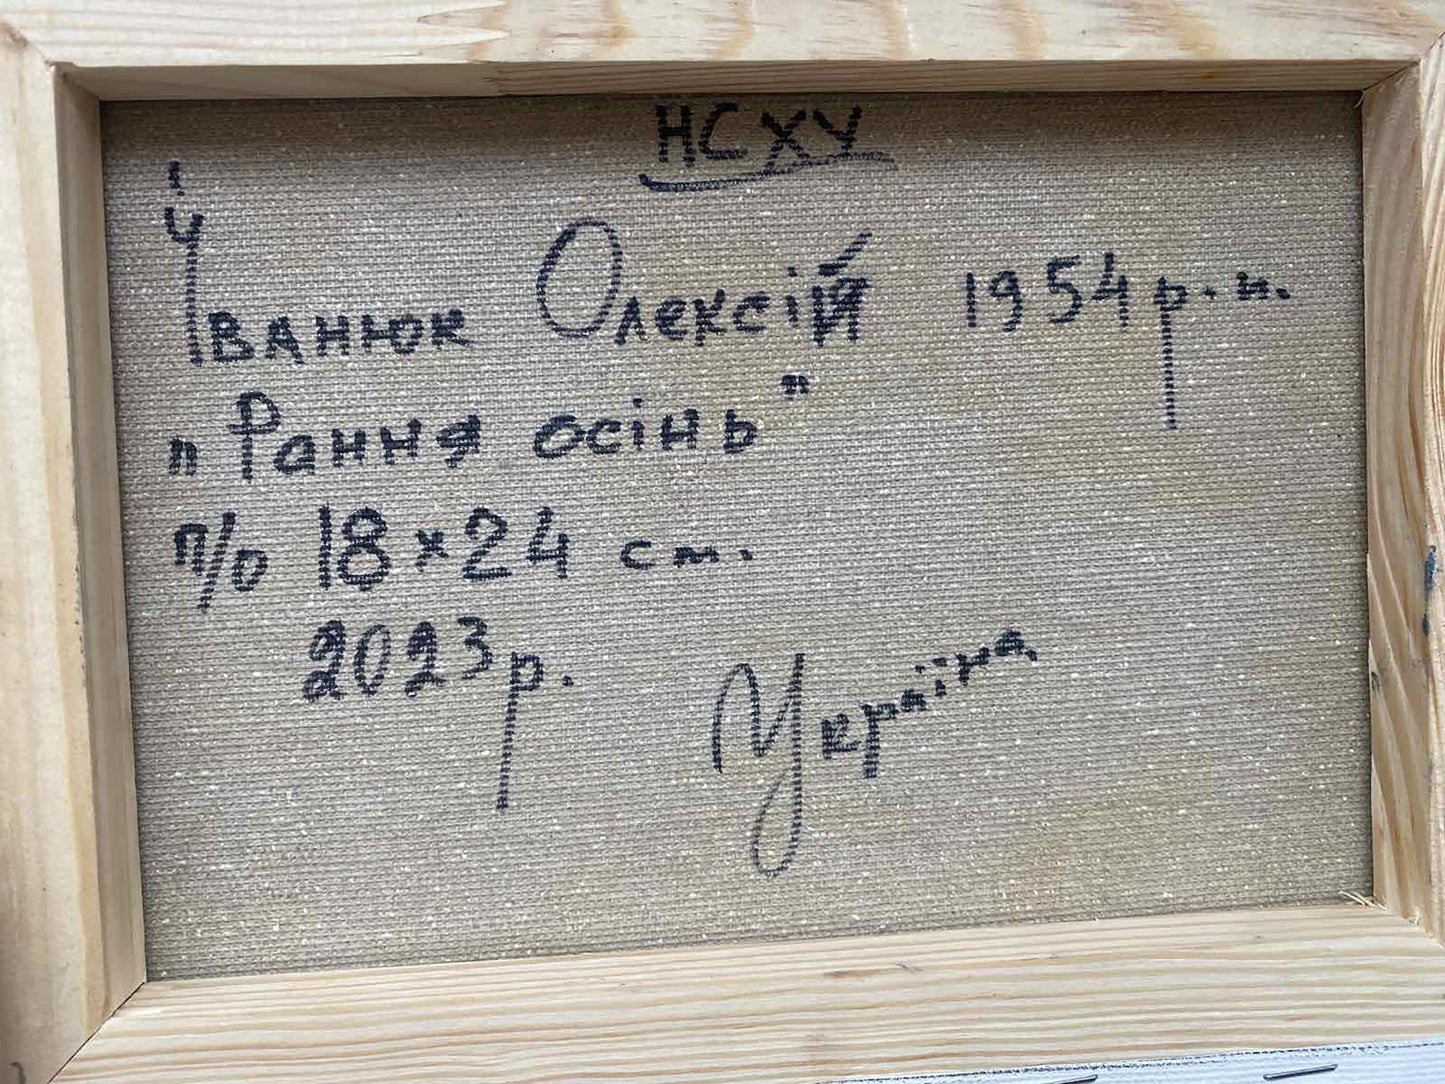 НСХУ
Іванюк Олексій 1954 р.н.
"Рання осінь"
п/о 18×24 см.
2023 р. Україна.